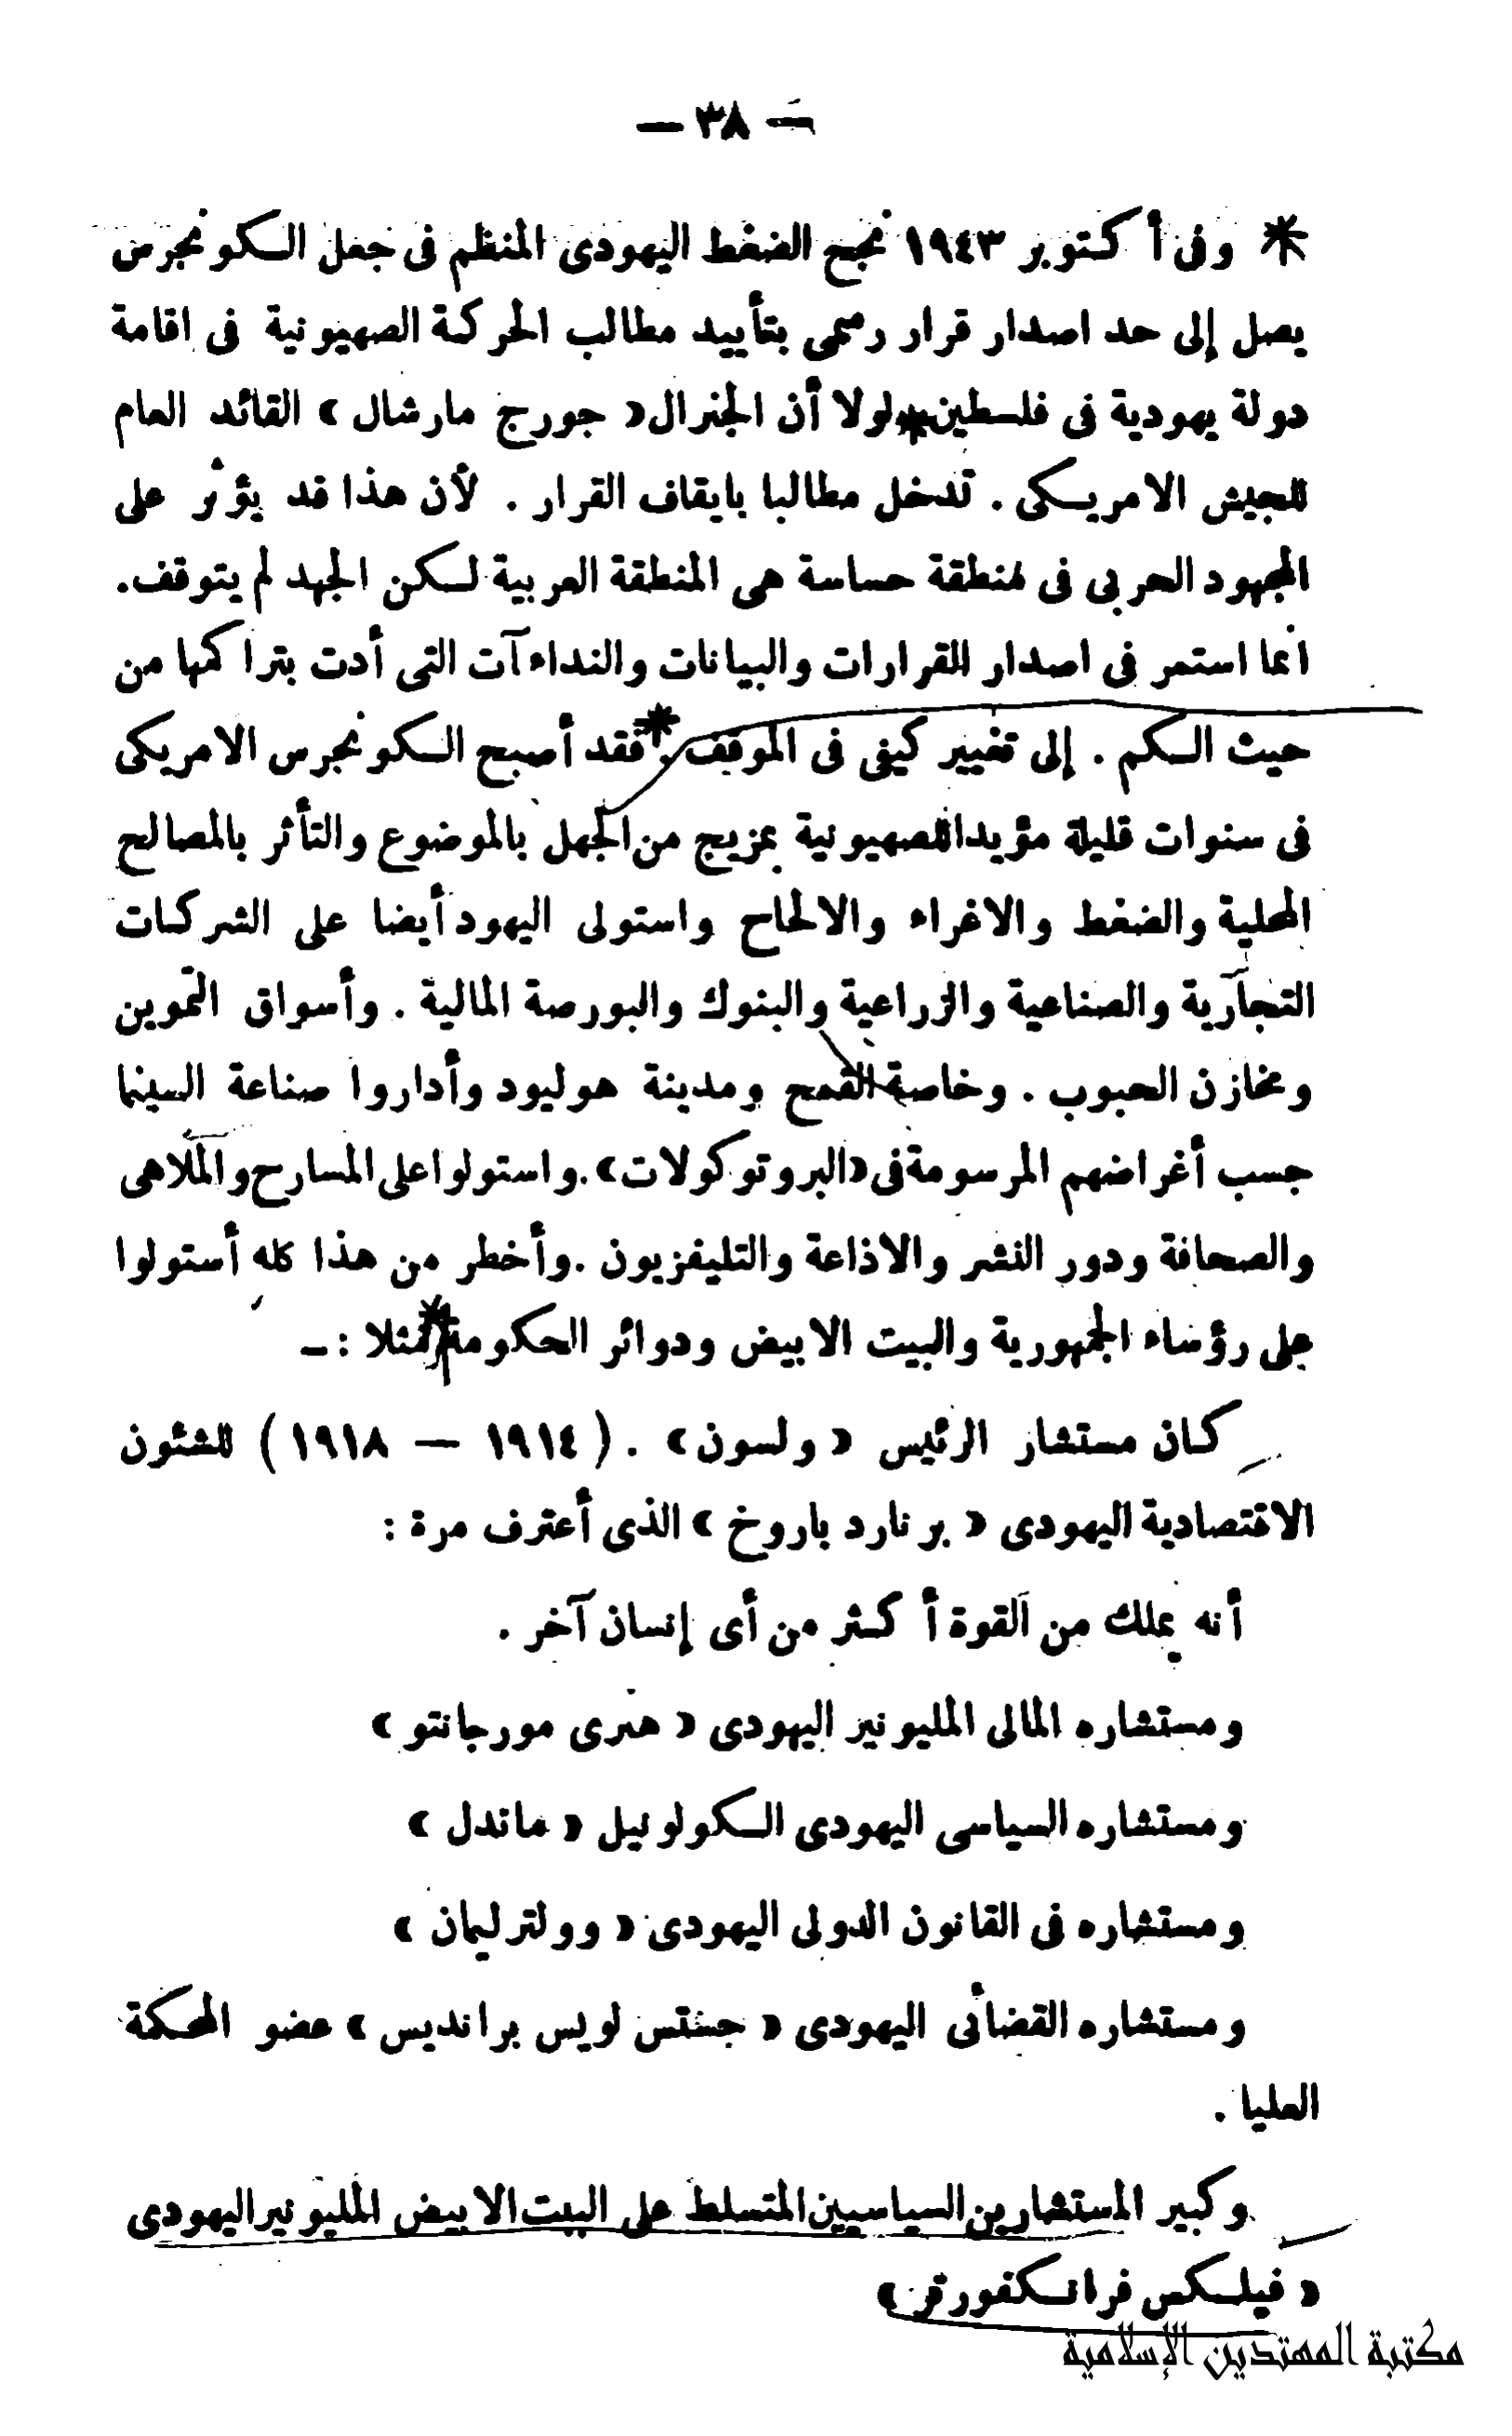 — ٣٨ —
* وفى أكتوبر ١٩٤٣ نجح الضغط اليهودى المنظم فى جعل الكونجرس
يصل إلى حد اصدار قرار رسمى بتأييد مطالب الحركة الصهيونية فى اقامة
دولة يهودية فى فلسطين * لولا أن الجنرال « جورج مارشال » القائد العام
للجيش الامريكى . تدخل مطالبا بايقاف القرار . لأن هذا قد يؤثر على
المجهود الحربى فى منطقة حساسة هى المنطقة العربية لكن الجهد لم يتوقف.
انما استمر فى اصدار القرارات والبيانات والنداءآت التى أدت بتراكمها من
حيث الكم . إلى تغيير كيفى فى الموقف . * فقد أصبح الكونجرس الامريكى
فى سنوات قليلة مؤيدا للصهيونية بمزيج من الجهل بالموضوع والتأثر بالمصالح
المحلية والضغط والاغراء والالحاح واستولى اليهود أيضا على الشركات
التجارية والصناعية والزراعية والبنوك والبورصة المالية . وأسواق التموين
ومخازن الحبوب . وخاصة القمح ومدينة هوليود وأداروا صناعة السينما
حسب أغراضهم المرسومة فى «البروتوكولات» . واستولوا على المسارح والملاهى
والصحافة ودور النشر والاذاعة والتليفزيون . وأخطر من هذا كله أستولوا
على رؤساء الجمهورية والبيت الابيض ودوائر الحكومة * فمثلا : ـ
كان مستشار الرئيس « ولسون » . ( ١٩١٤ — ١٩١٨ ) للشئون
الاقتصادية اليهودى « برنارد باروخ » الذى أعترف مرة :
أنه يملك من القوة أكثر من أى إنسان آخر .
ومستشاره المالى المليونير اليهودى « هنرى مورجانتو »
ومستشاره السياسى اليهودى الكولونيل « ماندل »
ومستشاره فى القانون الدولى اليهودى « وولتر ليمان »
ومستشاره القضائى اليهودى « جستس لويس برانديس » عضو المحكمة
العليا .
وكبير المستشارين السياسيين المتسلط على البيت الابيض المليونير اليهودى
« فيلكس فرانكفورتر »
مكتبة المهتدين الإسلامية